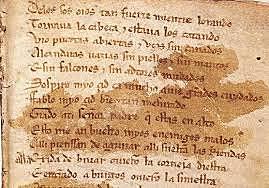 Delos sos oios tan fuerte mientre lorando
Tornaua la cabeça ⁊ estaua los catando
Vio puertas abiertas ⁊ vços sin cañados
Alcandaras uazias sin pielles ⁊ sin mantos
E sin falcones ⁊ sin adtores mudados
Sospiro myo çid ca mucho auie grandes cuydados
Ffablo myo çid bien ⁊ tan mesurado
Grado ati señor padre que estas en alto
Esto me an buelto myos enemigos malos
Alli pienssan de aguijar alli sueltan las Riendas
Ala Exida de biuar ouierõ la corneia diestra
E entrando a burgos ouierõ la siniestra